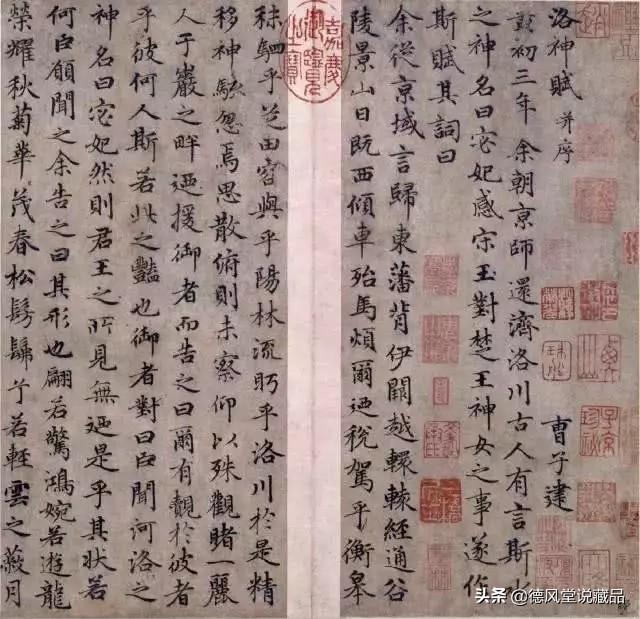 洛神賦 并序
曹子建
黃初三年余朝京師還濟洛川古人有言斯水
之神名曰宓妃感宋玉對楚王神女之事遂作
斯賦其詞曰
余從京域言歸東藩背伊闕越轘轅經通谷
陵景山日既西傾車殆馬煩爾迺稅駕乎衡皋
嘉慶御覽之寶
秣駟乎芝田容與乎陽林流眄乎洛川於是精
移神駭忽焉思散俯則未察仰以殊觀睹一麗
人于巖之畔迺援御者而告之曰爾有覿於彼者
乎彼何人斯若此之豔也御者對曰臣聞河洛之
神名曰宓妃然則君王之所見無迺是乎其狀若
何臣願聞之余告之曰其形也翩若驚鴻婉若遊龍
榮耀秋菊華茂春松髣髴兮若輕雲之蔽月
头条 @德风堂说藏品